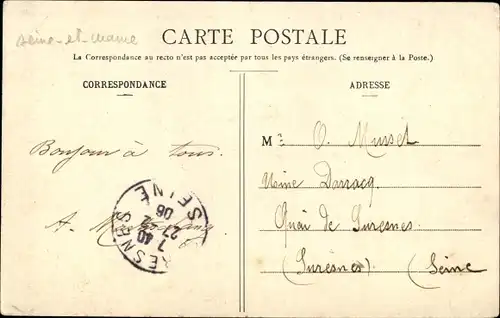 Seine-et-Marne
CARTE POSTALE
La Correspondance au recto n'est pas acceptée par tous les pays étrangers. (Se renseigner à la Poste.)
CORRESPONDANCE
Bonjour à tous.
A.
SURESNES SEINE
7 40
27
06
ADRESSE
Mr O. Musset
Usine Darracq
Quai de Suresnes
(Suresnes) (Seine